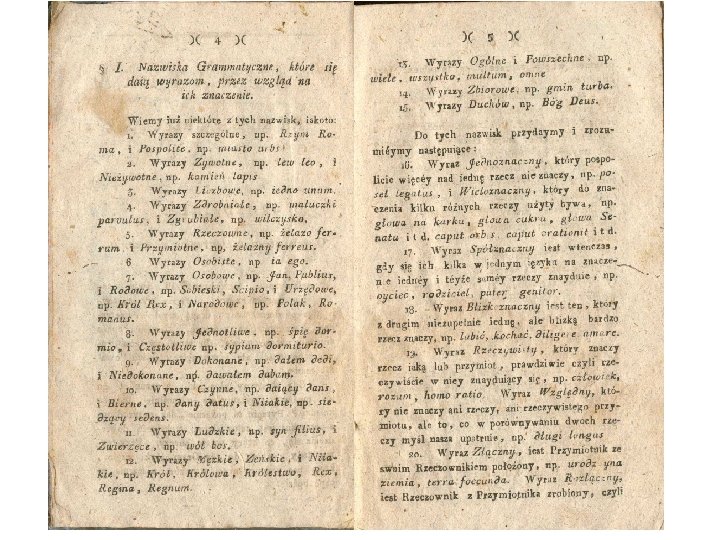 )( 4 )(
§ I. Nazwiska Grammatyczne, które się
daią wyrazom, przez wzgląd na
ich znaczenie.
Wiemy iuż niektóre z tych nazwisk, iakoto:
1. Wyrazy szczególne, np. Rzym Ro-
ma, i Pospolite, np. miasto urbs
2. Wyrazy Zywotne, np. lew leo, i
Nieżywotne, np. kamień lapis
3. Wyrazy Liczbowe, np. iedno unum.
4. Wyrazy Zdrobniałe, np. maluczki
parvulus, i Zgrubiałe, np. wilczysko,
5. Wyrazy Rzeczowne, np. żelazo fer-
rum, i Przymiotne, np. żelazny ferreus.
6 Wyrazy Osobiste, np ia ego.
7. Wyrazy Osobowe, np. Jan, Publius,
i Rodowe, np. Sobieski, Scipio, i Urzędowe,
np. Król Rex, i Narodowe, np. Polak, Ro-
manus.
8. Wyrazy Jednotliwe, np. śpię dor-
mio, i Częstotliwe np. sypiam dormiturio.
9. Wyrazy Dokonane, np. dałem dedi,
i Niedokonane, np. dawałem dabam.
10. Wyrazy Czynne, np. daiący dans,
i Bierne, np. dany datus, i Niiakie, np. sie-
dzący sedens.
11. Wyrazy Ludzkie, np. syn filius, i
Zwierzęce, np. wół bos.
12. Wyrazy Męzkie, Zeńskie, i Niia-
kie, np. Król, Królowa, Królestwo, Rex,
Regina, Regnum.
)( 5 )(
13. Wyrazy Ogólne i Powszechne, np.
wiele, wszystko, multum, omne
14. Wyrazy Zbiorowe, np. gmin turba.
15. Wyrazy Duchów, np. Bóg Deus.
Do tych nazwisk przydaymy i zrozu-
miéymy następuiące:
16. Wyraz Jednoznaczny, który pospo-
licie więcéy nad iednę rzecz nie znaczy, np. po-
sel legatus, i Wieloznaczny, który do zna-
czenia kilku różnych rzeczy użyty bywa, np.
głowa na karku, głowa cukru, głowa Se-
natu i t d. caput orbis, caput orationis i t d.
17. Wyraz Spółznaczny iest wienczas,
gdy się ich kilka w iednym ięzyku na znacze-
nie iednéy i téyże saméy rzeczy znayduie, np.
oyciec, rodziciel, pater, genitor.
18. Wyraz Blizkoznaczny iest ten, który
z drugim niezupełnie iednę, ale blizką bardzo
rzecz znaczy, np. lubić, kochać, diligere amare.
19. Wyraz Rzeczywisty, który znaczy
rzecz iaką lub przymiot, prawdziwie czyli rze-
czywiście w niey znayduiący się, np. człowiek,
rozum, homo ratio. Wyraz Względny, któ-
ry nie znaczy ani rzeczy, ani rzeczywistego przy-
miotu, ale to, co w porównywaniu dwoch rze-
czy myśl nasza upatruie, np. długi longus
20. Wyraz Złączny, iest Przymiotnik ze
swoim Rzeczownikiem położony, np. urodzayna
ziemia, terra foecunda. Wyraz Rozłączny,
iest Rzeczownik z Przymiotnika zrobiony, czyli